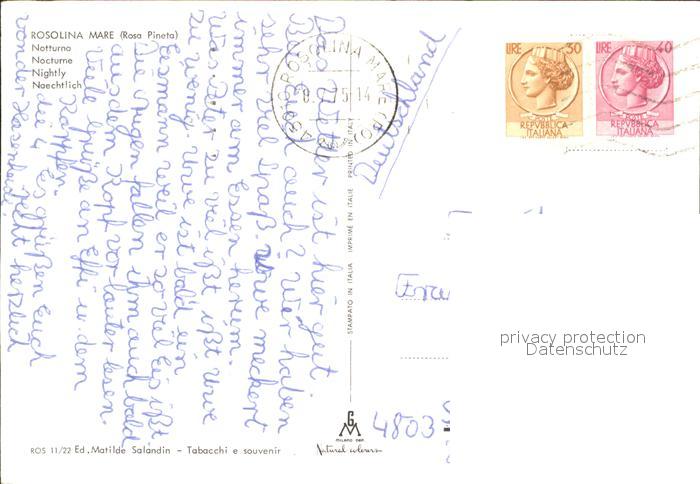 ROSOLINA MARE (Rosa Pineta)
Notturno
Nocturne
Nightly
Naechtlich
Das Wetter ist hier gut.
Bei Euch auch? Wir haben
sehr viel Spaß. Uwe meckert
immer am Essen herum.
Was Peter zu viel ißt ißt Uwe
zu wenig. Uwe ist bald ein
Eismann weil er so viel Eis ißt.
Die Augen fallen ihm auch bald
aus dem Kopf vor lauter lesen.
Viele Grüße an Effi u. dem
Es grüßen Euch
die 4
von der Hasenheide
herzlich
ROSOLINA MARE (RO)
14
Deutschland
LIRE 30
POSTE
REPVBBLICA
ITALIANA
LIRE 40
POSTE
REPVBBLICA
ITALIANA
STAMPATO IN ITALIA IMPRIMÉ EN ITALIE PRINTED IN ITALY
4803
privacy protection
Datenschutz
G
M
MILANO DEP.
Natural colours
ROS 11/22 Ed. Matilde Salandin - Tabacchi e souvenir